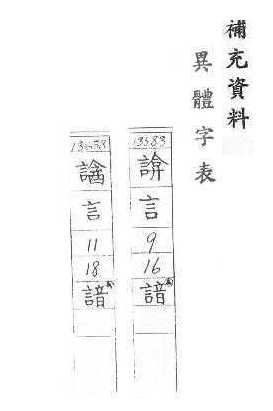 補充資料
異體字表
13583
言
9
16
諳
言
11
18
諳